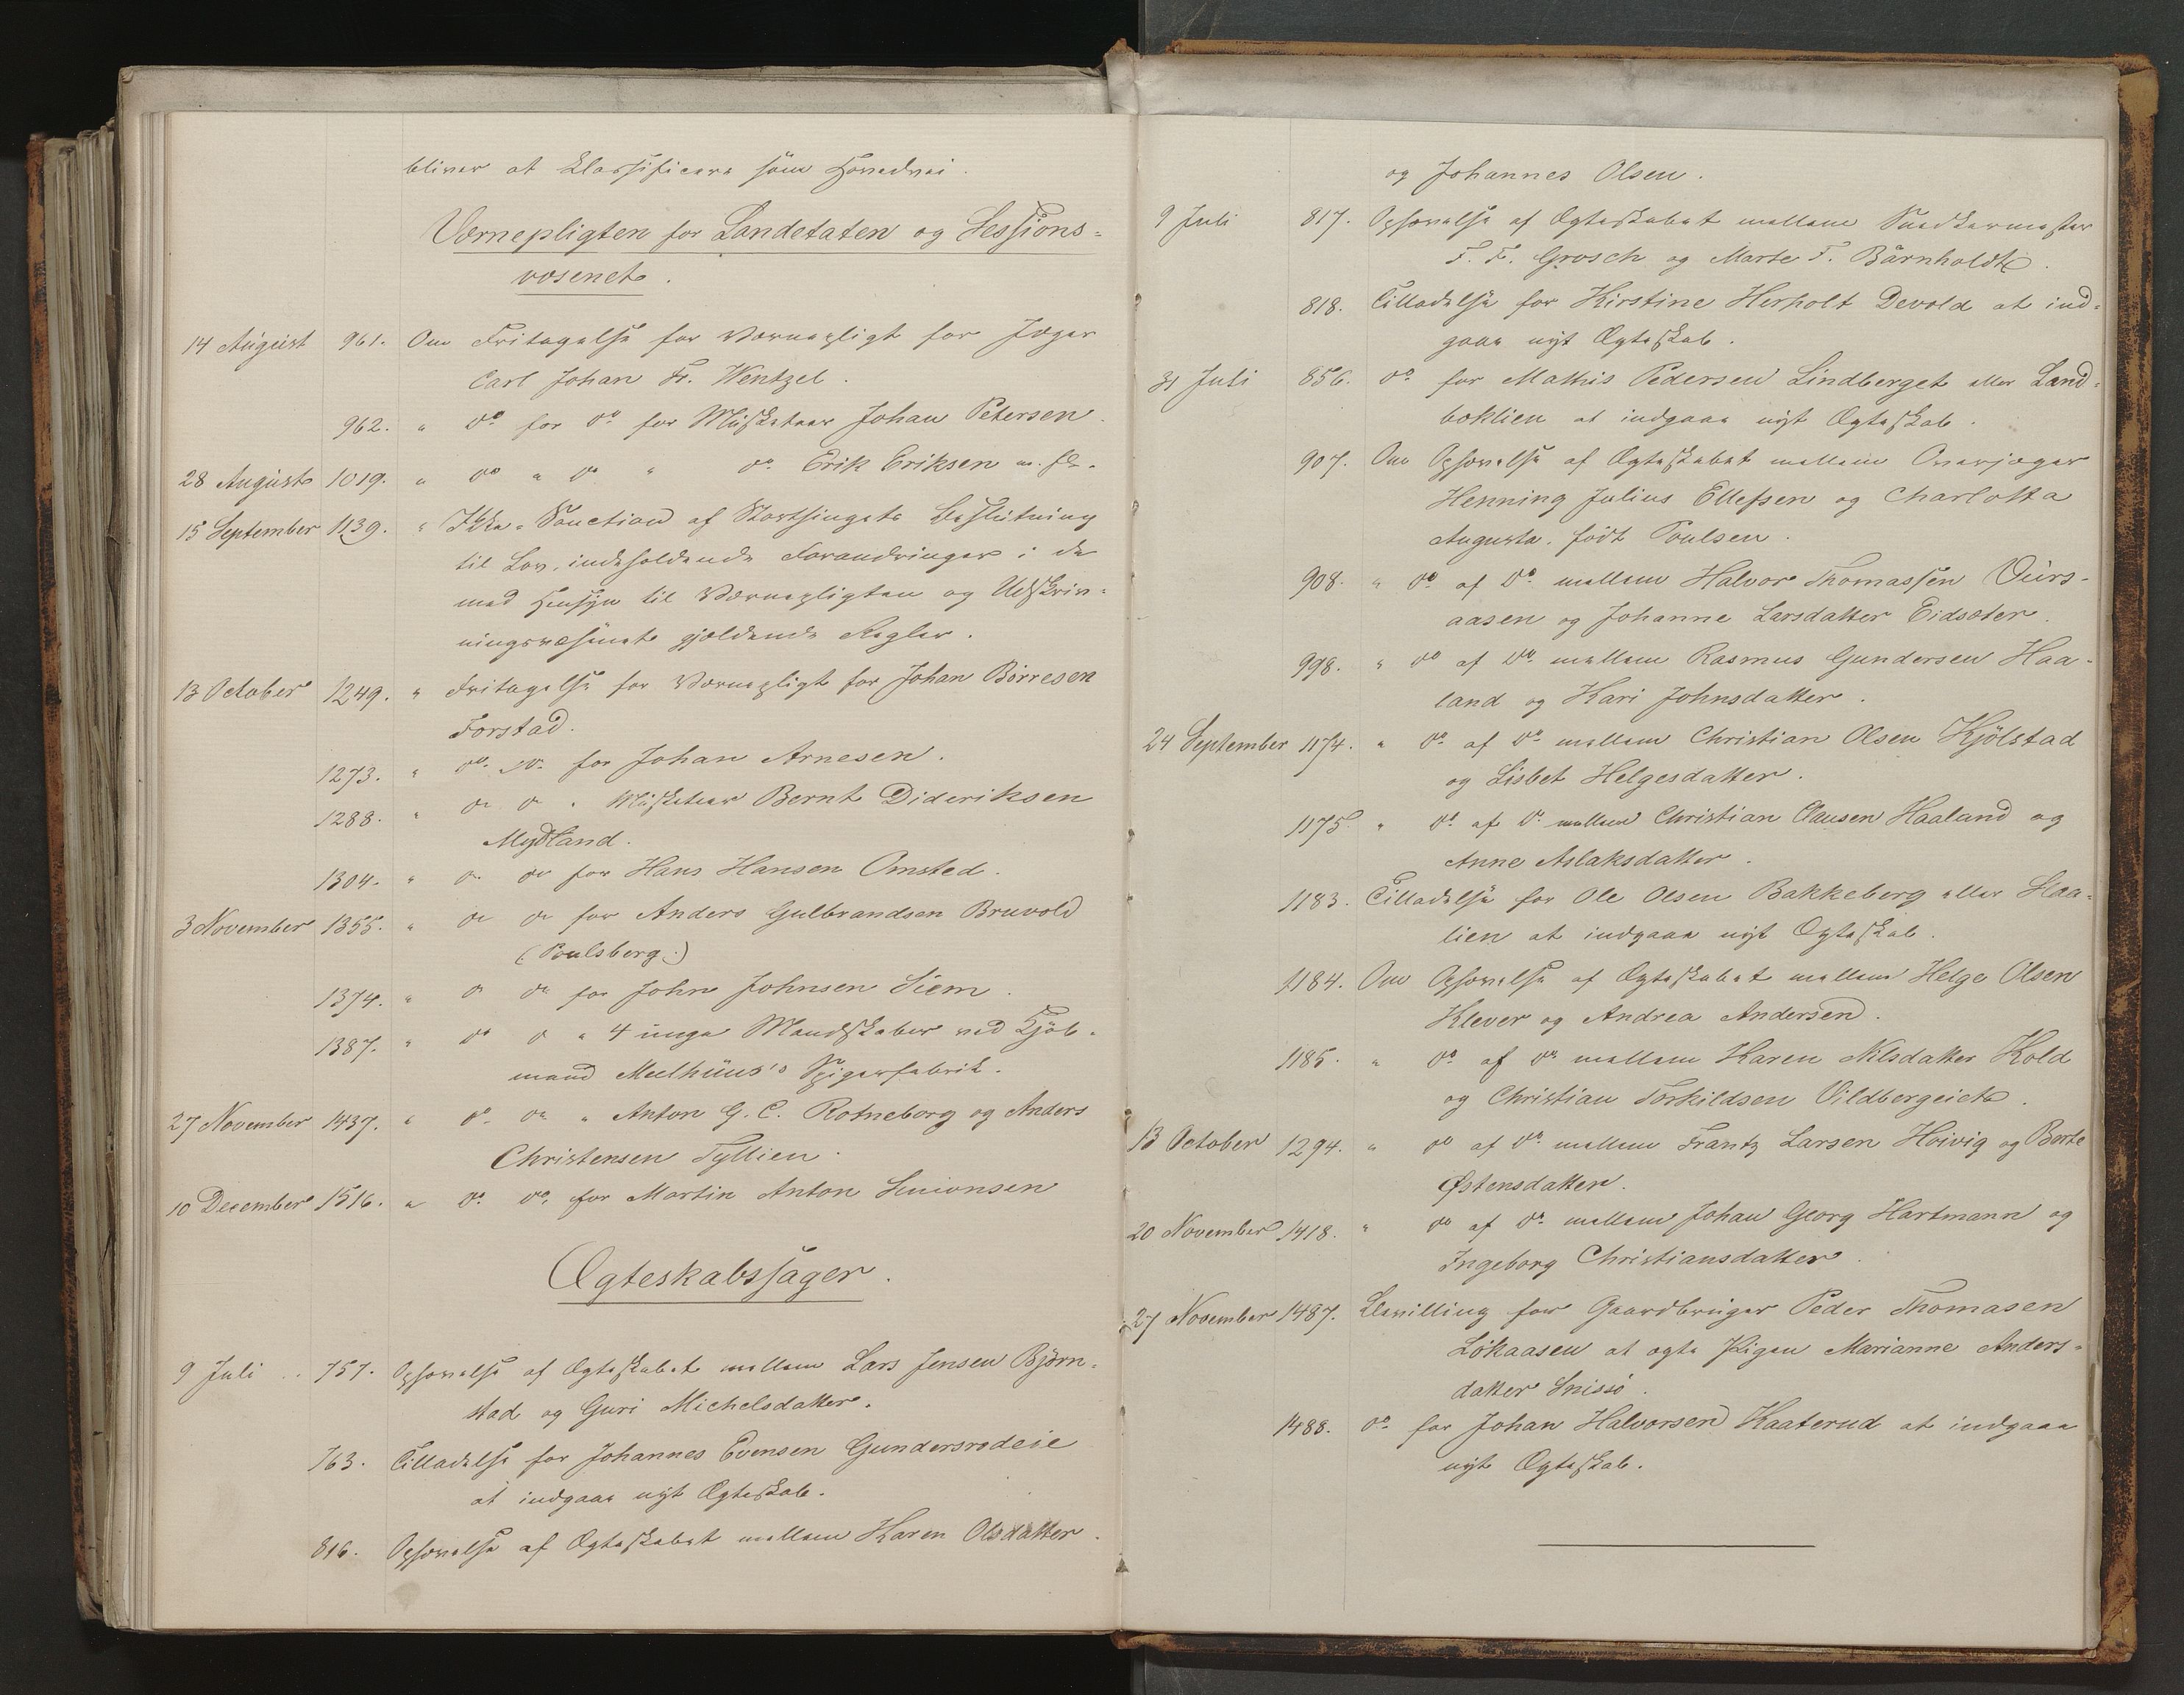 bliver at klassificere som Hovedvei.
Værnepligten for Landetaten og Sessions-
væsenet.
14 August 961. Om Fritagelse for Værnepligt for Jæger
Carl Johan Fr. Wentzel.
962. " do for do for Musketeer Johan Petersen.
28 August 1019. " do " do " do. Erik Eriksen m. fl.
15 September 1139. " Ikke-Sanction af Storthingets Beslutning
til Lov, indeholdende Forandringer i de
med Hensyn til Værnepligten og Udskriv-
ningsvæsenet gjældende Regler.
13 October 1249. " Fritagelse for Værnepligt for Johan Börresen
Forstad.
1273. " do. do. for Johan Arnesen.
1288. " do do " Musketeer Bernt Dideriksen
Mydland.
1304. " do do for Hans Hansen Omsted.
3 November 1355. " do do for Anders Gulbrandsen Bruvold
(Poulsberg:)
1374. " do do for John Johnsen Siem.
1387. " do do " 4 unge Mandskaber ved Kjöb-
mand Meelhuus's Spigerfabrik.
27 November 1437. " do. do " Anton G. C. Rotneborg og Anders
Christensen Tyllien.
10 December 1516. " do. do. for Martin Anton Simonsen
Ægteskabssager.
9 Juli 757. Ophævelse af Ægteskabet mellem Lars Jensen Björn-
stad og Guri Michelsdatter.
763. Tilladelse for Johannes Evensen Gundersrødeie
at indgaae nyt Ægteskab.
816. Ophævelse af Ægteskabet mellem Karen Olsdatter
og Johannes Olsen.
9 Juli 817. Ophævelse af Ægteskabet mellem Snedkermester
F. F. Grosch og Marte F. Bärnholdt.
818. Tilladelse for Kirstine Herholt Devold at ind-
gaae nyt Ægteskab.
31 Juli 856. do for Mathis Pedersen Lindberget eller Land-
boklien at indgaae nyt Ægteskab.
907. Om Ophævelse af Ægteskabet mellem Overjæger
Henning Julius Ellefsen og Charlotta
Augusta, født Poulsen.
908. " do af do. mellem Halvor Thomassen Duurs-
aasen og Johanne Larsdatter Eidsæter.
998. " do af do. mellem Rasmus Gundersen Haa-
land og Kari Johnsdatter.
24 September 1174. " do. af do. mellem Christian Olsen Kjölstad
og Lisbet Helgesdatter.
1175. " do. af do. mellem Christian Clausen Haaland og
Anne Aslaksdatter.
1183. Tilladelse for Ole Olsen Bakkeberg eller Haa-
lien at indgaae nyt Ægteskab.
1184. Om Ophævelse af Ægteskabet mellem Helge Olsen
Klever og Andrea Andersen.
1185. " do. af do mellem Karen Nilsdatter Kold
og Christian Torkildsen Vildbergeiet.
13 October 1294. " do af do. mellem Frantz Larsen Hoivig og Berte
Østensdatter.
20 November 1418. " do af do. mellem Johan Georg Hartmann og
Ingeborg Christiansdatter.
27 November 1487. Bevilling for Gaardbruger Peder Thomasen
Lökaasen at ægte Pigen Marianne Anders-
datter Snissö.
1488. do for Johan Halvorsen Kaaterud at indgaae
nyt Ægteskab.